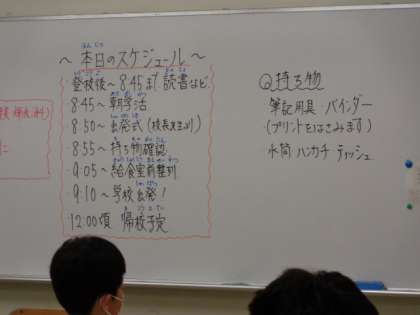 ～本日のスケジュール～
・登校後～8:45まで 読書など
8:45～朝学活
8:50～出発式(校長先生より)
・8:55～持ち物確認
・9:05～給食室前整列
・9:10～学校出発！
12:00頃 帰校予定
持ち物
筆記用具 バインダー
(プリントをはさみます)
水筒 ハンカチ ティッシュ